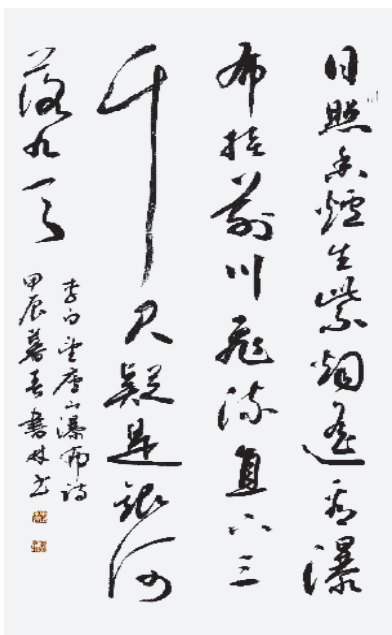 日照香爐生紫烟遥看瀑
布挂前川飛流直下三
千尺疑是銀河
落九天
李白望廬山瀑布詩
甲辰暮春書林书